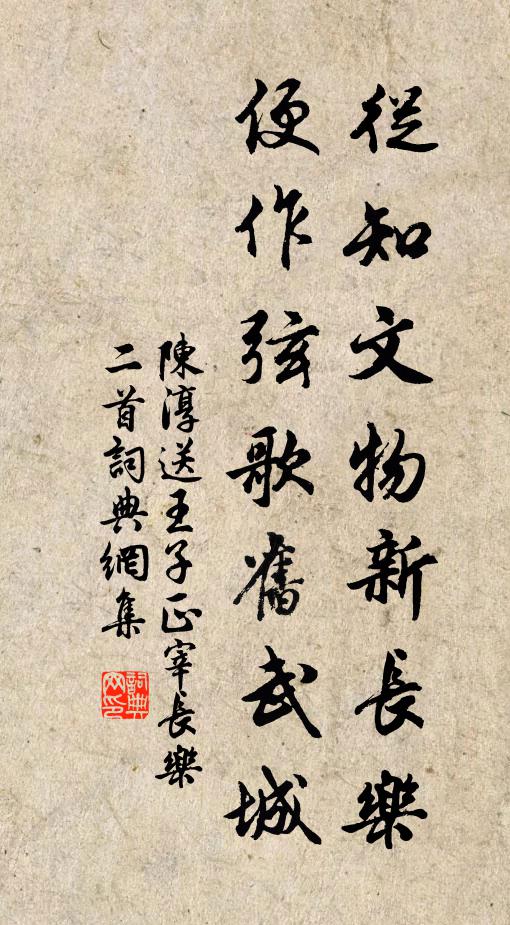 從知文物新長樂
便作弦歌舊武城
陳淳送王子正宰長樂
二首詞典網集
詞典
網印